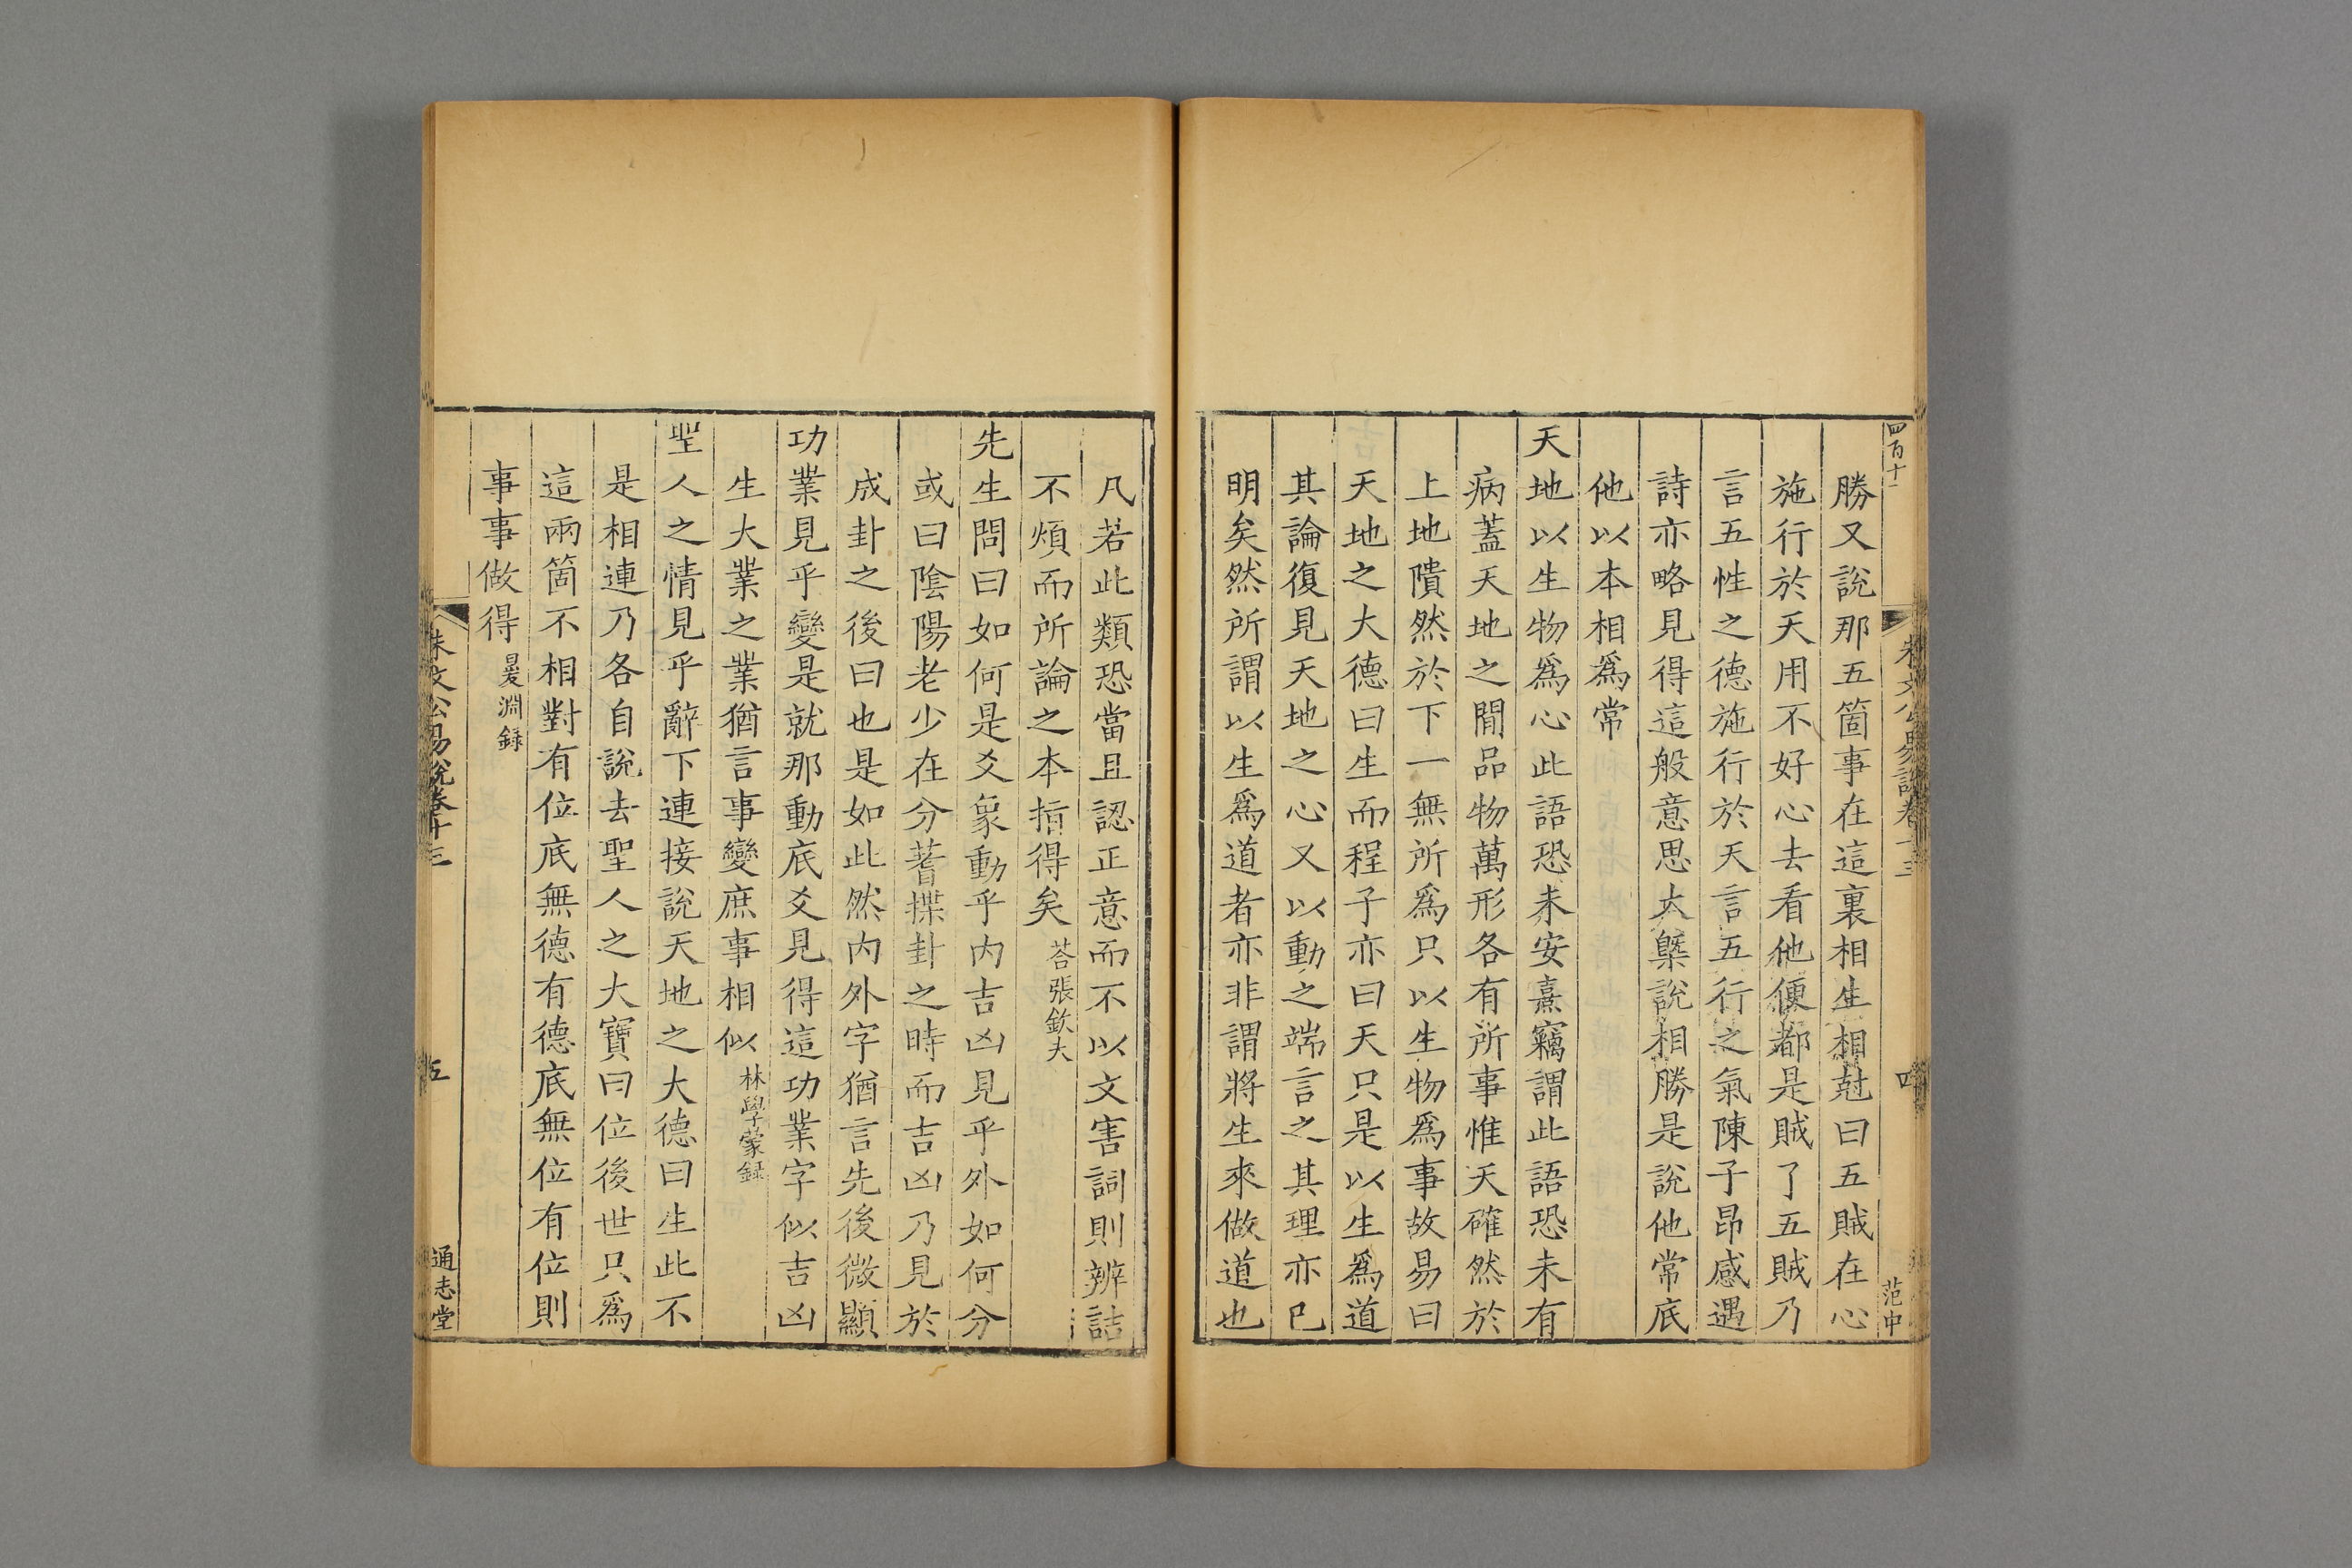 四百十一
朱文公易說卷十三
四
范中
勝又說那五箇事在這裏相生相尅曰五賊在心
施行於天用不好心去看他便都是賊了五賊乃
言五性之德施行於天言五行之氣陳子昂感遇
詩亦略見得這般意思大槩說相勝是說他常底
他以本相爲常
天地以生物爲心此語恐未安熹竊謂此語恐未有
病蓋天地之閒品物萬形各有所事惟天確然於
上地隤然於下一無所爲只以生物爲事故易曰
天地之大德曰生而程子亦曰天只是以生爲道
其論復見天地之心又以動之端言之其理亦已
明矣然所謂以生爲道者亦非謂將生來做道也
凡若此類恐當且認正意而不以文害詞則辨詰
不煩而所論之本指得矣荅張欽夫
先生問曰如何是爻象動乎内吉凶見乎外如何分
或曰陰陽老少在分蓍揲卦之時而吉凶乃見於
成卦之後曰也是如此然内外字猶言先後微顯
功業見乎變是就那動底爻見得這功業字似吉凶
生大業之業猶言事變庶事相似林學蒙録
聖人之情見乎辭下連接說天地之大德曰生此不
是相連乃各自說去聖人之大寶曰位後世只爲
這兩箇不相對有位底無德有德底無位有位則
事事做得㬊淵録
朱文公易說卷十三
五
通志堂